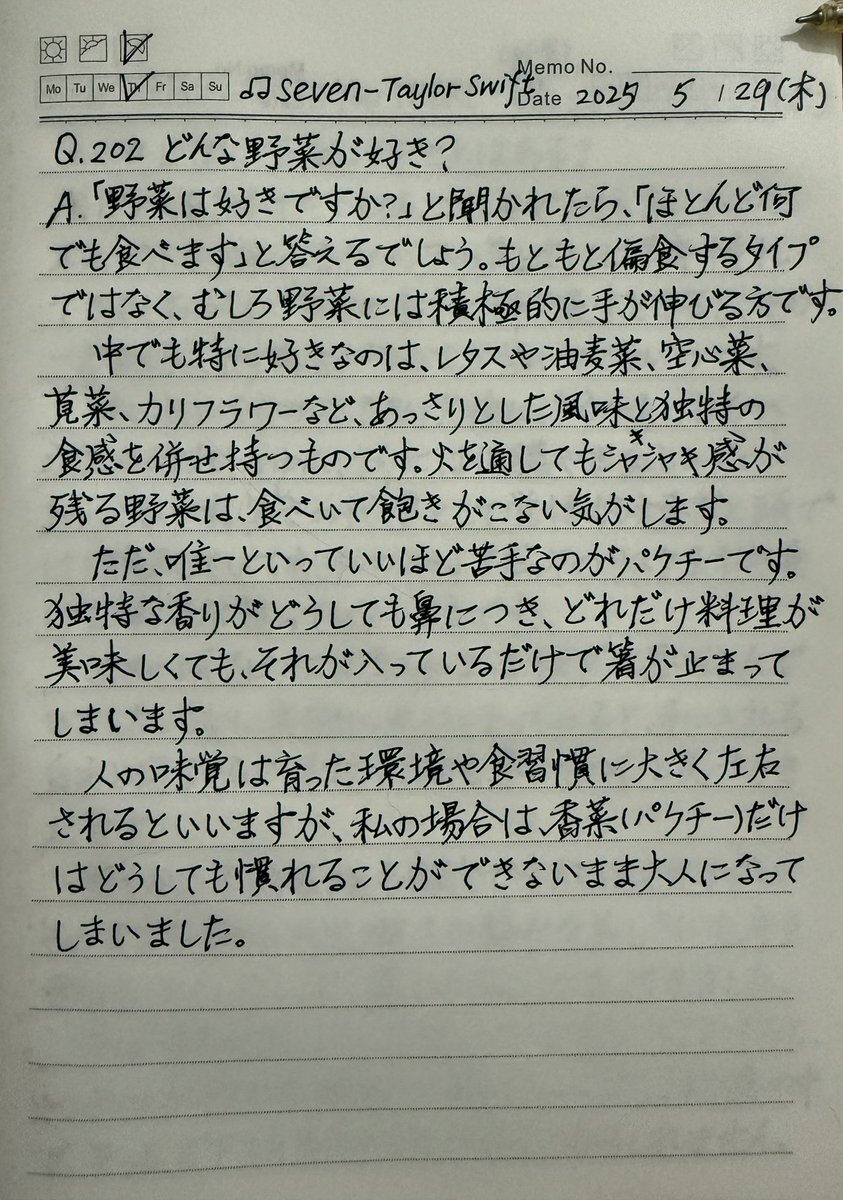 Mo Tu We Th Fr Sa Su ♫seven-Taylor Swift Memo No.
Date 2025 5 29(木)
Q.202 どんな野菜が好き?
A.「野菜は好きですか?」と聞かれたら、「ほとんど何
でも食べます」と答えるでしょう。もともと偏食するタイプ
ではなく、むしろ野菜には積極的に手が伸びる方です。
中でも特に好きなのは、レタスや油麦菜、空心菜、
苋菜、カリフラワーなど、あっさりとした風味と独特の
食感を併せ持つものです。火を通してもシャキシャキ感が
残る野菜は、食べいて飽きがこない気がします。
ただ、唯一といっていいほど苦手なのがパクチーです。
独特な香りがどうしても鼻につき、どれだけ料理が
美味しくても、それが入っているだけで箸が止まって
しまいます。
人の味覚は育った環境や食習慣に大きく左右
されるといいますが、私の場合は、香菜(パクチー)だけ
はどうしても慣れることができないまま大人になって
しまいました。